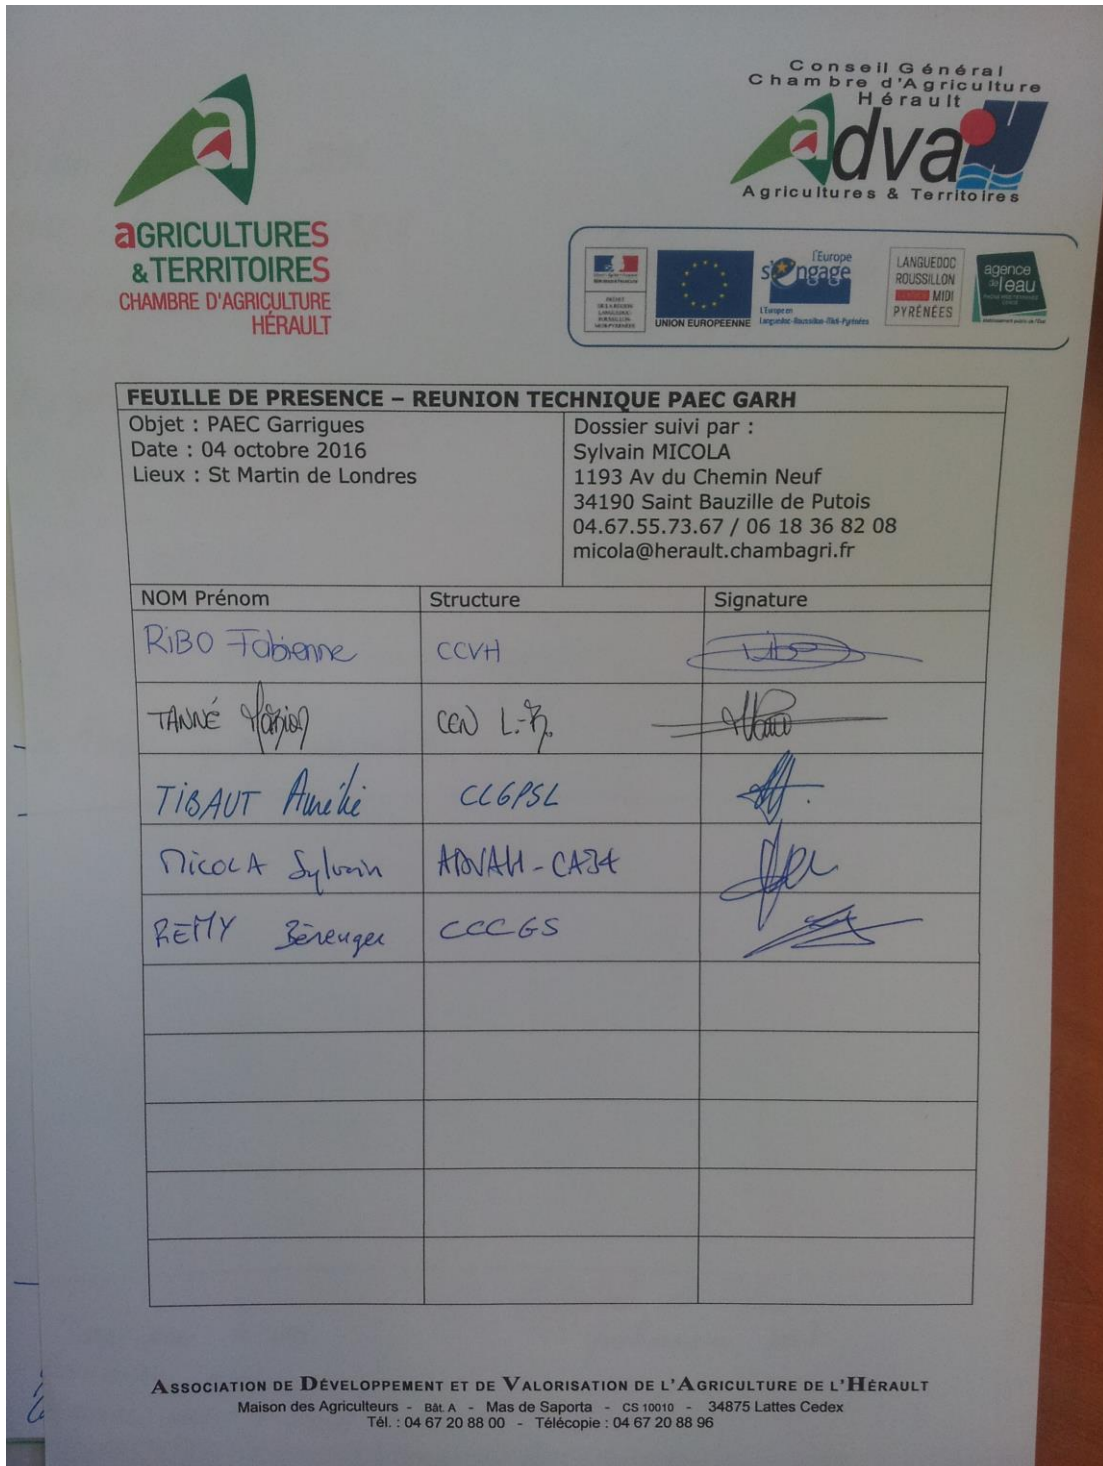 Conseil Général
Chambre d'Agriculture
Hérault
adva
Agricultures & Territoires
a
aGRICULTURES
& TERRITOIRES
CHAMBRE D'AGRICULTURE
HÉRAULT
UNION EUROPEENNE
l'Europe
s'engage
L'Europe en
Languedoc-Roussillon-Midi-Pyrénées
LANGUEDOC
ROUSSILLON
MIDI
PYRÉNÉES
agence
de l'eau
FEUILLE DE PRESENCE – REUNION TECHNIQUE PAEC GARH
Objet : PAEC Garrigues
Date : 04 octobre 2016
Lieux : St Martin de Londres
Dossier suivi par :
Sylvain MICOLA
1193 Av du Chemin Neuf
34190 Saint Bauzille de Putois
04.67.55.73.67 / 06 18 36 82 08
micola@herault.chambagri.fr
NOM Prénom Structure Signature
RIBO Fabienne CCVH
TANNÉ Marion CEN L.-R.
TIBAUT Aurélie CCGPSL
MICOLA Sylvain ADVAH - CA34
REMY Bérenger CCCGS
ASSOCIATION DE DÉVELOPPEMENT ET DE VALORISATION DE L'AGRICULTURE DE L'HÉRAULT
Maison des Agriculteurs - Bât. A - Mas de Saporta - CS 10010 - 34875 Lattes Cedex
Tél. : 04 67 20 88 00 - Télécopie : 04 67 20 88 96